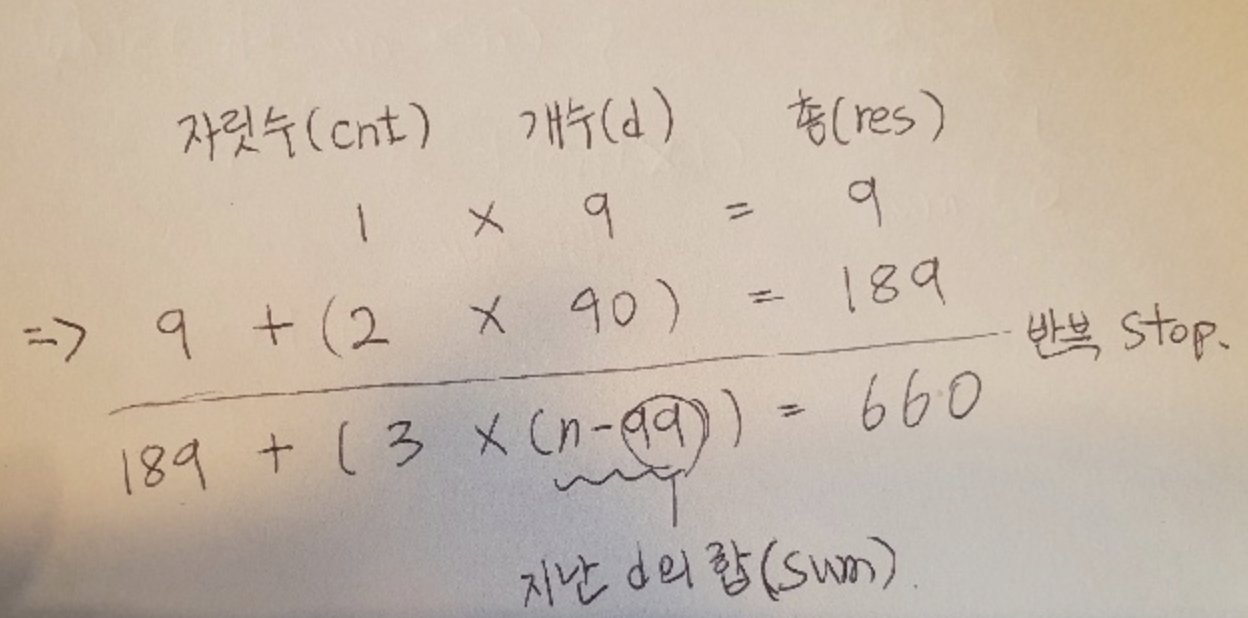 자릿수(cnt) 개수(d) 총(res)
1 × 9 = 9
=> 9 + (2 × 90) = 189
반복 stop.
189 + (3 × (n-99)) = 660
지난 d의 합(sum)